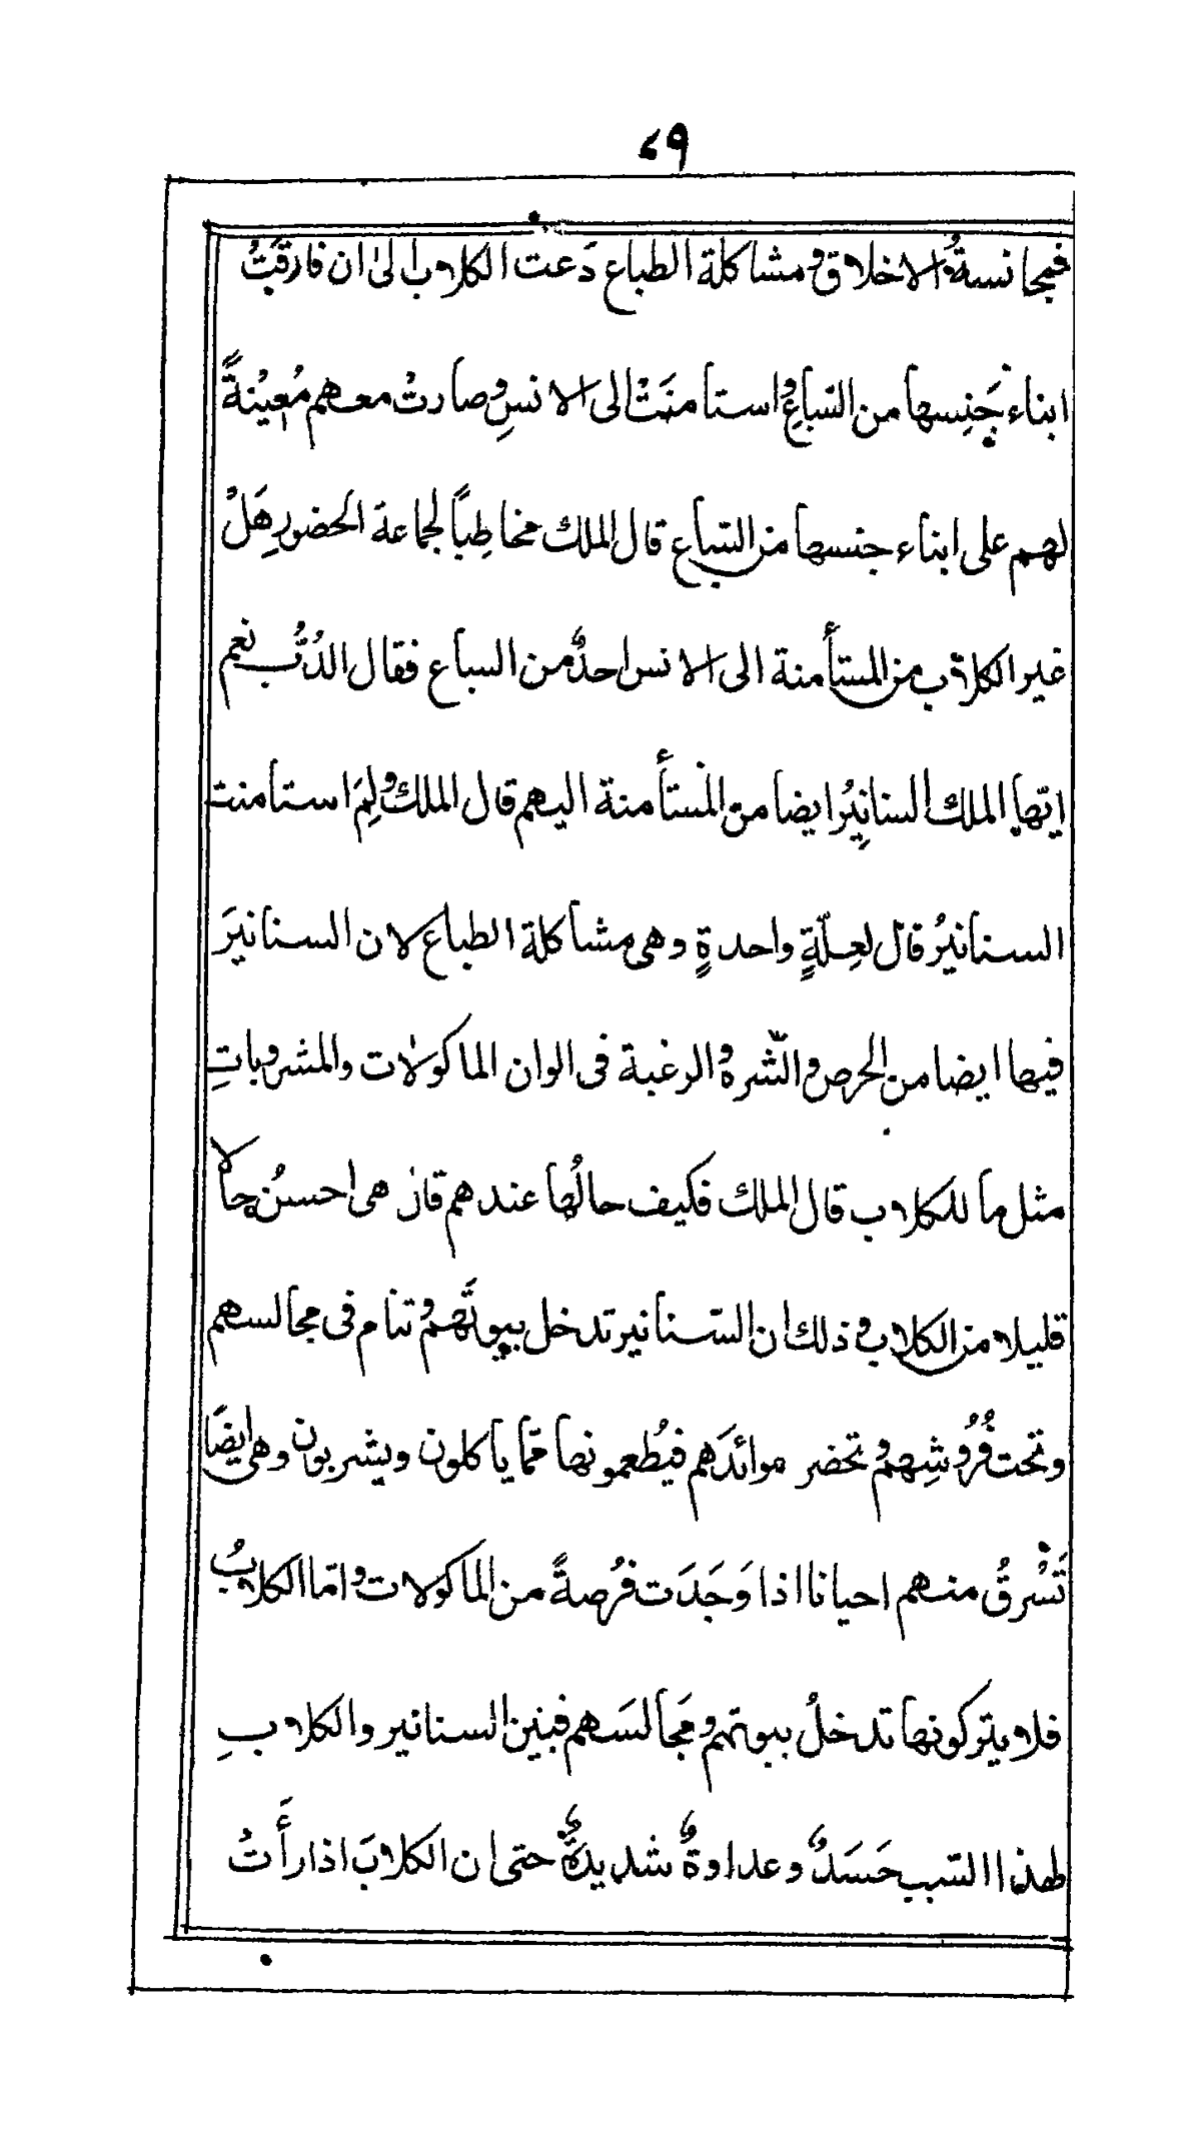 ٤٩
فمجانسةُ الاخلاق ومشاكلة الطباع دَعت الكلاب الى ان فارقَتْ
ابناء جَنِسها من السّباعِ واستامنَتْ الى الانسِ وصارتْ معهم مُعِيْنةً
لهم على ابناء جنسها من السباع قال الملك مخاطِباً لجماعة الحضورِ هَلْ
غير الكلاب من المستأمنة الى الانس احدٌ من السباع فقال الدُبُّ نعم
ايّها الملك السنانِيرُ ايضا من المستأمنة اليهم قال الملك ولِمَ استامنت
السنانيرُ قال لعِلّةٍ واحدةٍ وهى مشاكلة الطباع لان السنانيرَ
فيها ايضا من الحرص والشّره والرغبة فى الوان الماكولات والمشروباتِ
مثل ما للكلاب قال الملك فكيف حالُها عندهم قال هى احسنُ حالا
قليلا من الكلاب وذلك ان السّنانير تدخل بيوتَهم وتنام فى مجالسهم
وتحت فُرُوشِهم وتحضر موائدَهم فيُطعمونها ممّا ياكلون ويشربون وهى ايضًا
تَسْرقُ منهم احيانا اذا وَجَدَت فُرصةً من الماكولات وامّا الكلابُ
فلا يتركونها تدخلُ بيوتهم ومَجالسَهم فبين السنانير والكلابِ
لهذا السّبب حَسَدٌ وعداوةٌ شديدةٌ حتى ان الكلابَ اذا رأَتْ